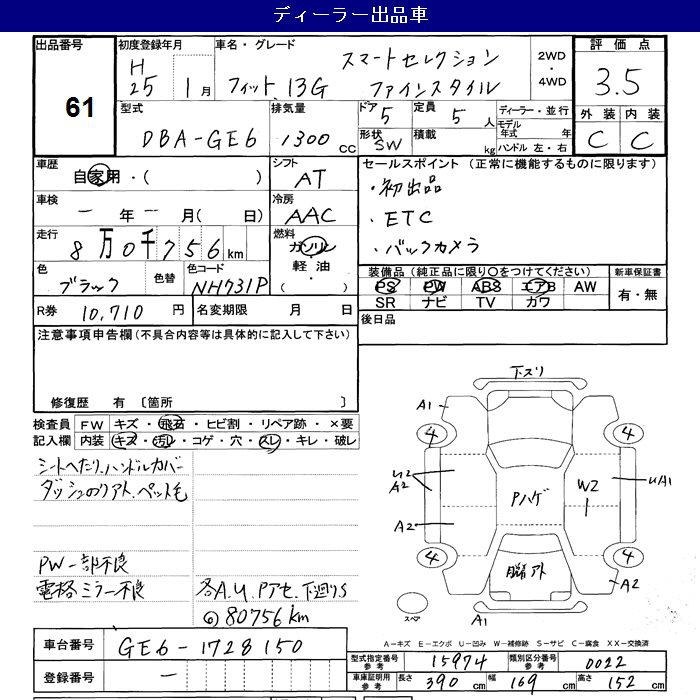 ディーラー出品車
出品番号 61
初度登録年月 H 25年 1月
車名・グレード フィット 13G スマートセレクション ファインスタイル
2WD・4WD
評価点 3.5
外装 C 内装 C
型式 DBA-GE6
排気量 1300 cc
ドア 5
形状 SW
定員 5 人
積載 kg
ディーラー・並行
モデル年式 年
ハンドル 左・右
車歴 自家用・( )
シフト AT
車検 ー年ー月( 日)
冷房 AAC
走行 8万0千756km
燃料 ガソリン・軽油・( )
色 ブラック
色替
色コード NH731P
R券 10,710 円
名変期限 月 日
セールスポイント (正常に機能するものに限ります)
・初出品
・ETC
・バックカメラ
装備品 (純正品に限り○をつけてください)
PS PW ABS エアB AW
SR ナビ TV カワ
新車保証書 有・無
後日品
注意事項申告欄(不具合内容等は具体的に記入して下さい)
修復歴 有 〔箇所
検査員記入欄
FW キズ・飛石・ヒビ割・リペア跡・×要
内装 キズ・汚レ・コゲ・穴・スレ・キレ・破レ
シートヘたり、ハンドルカバー
ダッシュのりアト、ペット毛
PW一部不良
電格ミラー不良
各A.U.Pアセ、下廻りS
◎80756km
下スリ
A1
4 4
U2 A2
A2
Pハゲ
W2
UA1
4 4
A2
アト
スペア
A1
A-キズ E-エクボ U-凹み W-補修跡 S-サビ C-腐食 XX-交換済
車台番号 GE6-1728150
登録番号 ー
型式指定番号 参考 15974
類別区分番号 参考 0022
車庫証明用 参考 長さ 390 cm 幅 169 cm 高さ 152 cm